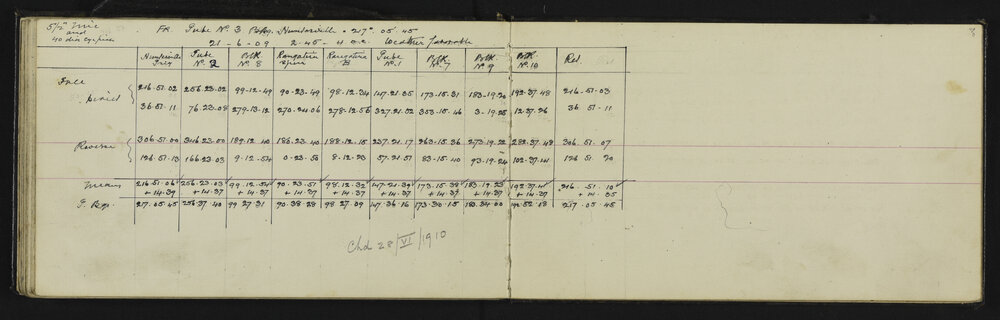 5½" Mic
and
40 dia eyepiece
FR Tube No. 3 Brg. Hunterville = 217°. 05'. 45
21 - 6 - 09 2.45 - 4 Weather favorable
Hunterville Trig | Tube No. 2 | No. 8 | Rangatira Spire | Rangatira B | Tube No. 1 | No. 7 | No. 9 | No. 10 | Ref.
Face
period
216.51.02 256.23.02 99-12-49 90-23-49 98-12-34 147.21.35 173.15.31 183.19.24 192.37.48 216-51-03
36.51.11 76.23.08 279-13-12 270.24.06 278-12-50 327.21.02 353-15-46 3-19.25 12.37.26 36.51-11
Reverse
306.51.00 346.23.00 189.12.40 180.23.40 188.12.15 237.21.17 263.15.36 273.19.22 282.37.48 306.51.07
126.51.13 166.23.03 9-12-54 0-23-58 8-12-23 57.21.51 83-15.40 93.19.24 102.37.41 126 51 20
Means 216.51.06 256.23.03 99.12.54 90.23.51 98.12.32 147.21.39 173.15.38 183.19.23 192.37.41 216.51.10
+14.39 +14.37 +14.37 +14.37 +14.37 +14.37 +14.37 +14.37 +14.37 +14.35
T. Brgs. 217.05.45 256.37.40 99 27.31 90.38.28 98.27.09 147.36.16 173.30.15 183.34.00 192.52.18 217.05.45
Chd 28/VI/1910